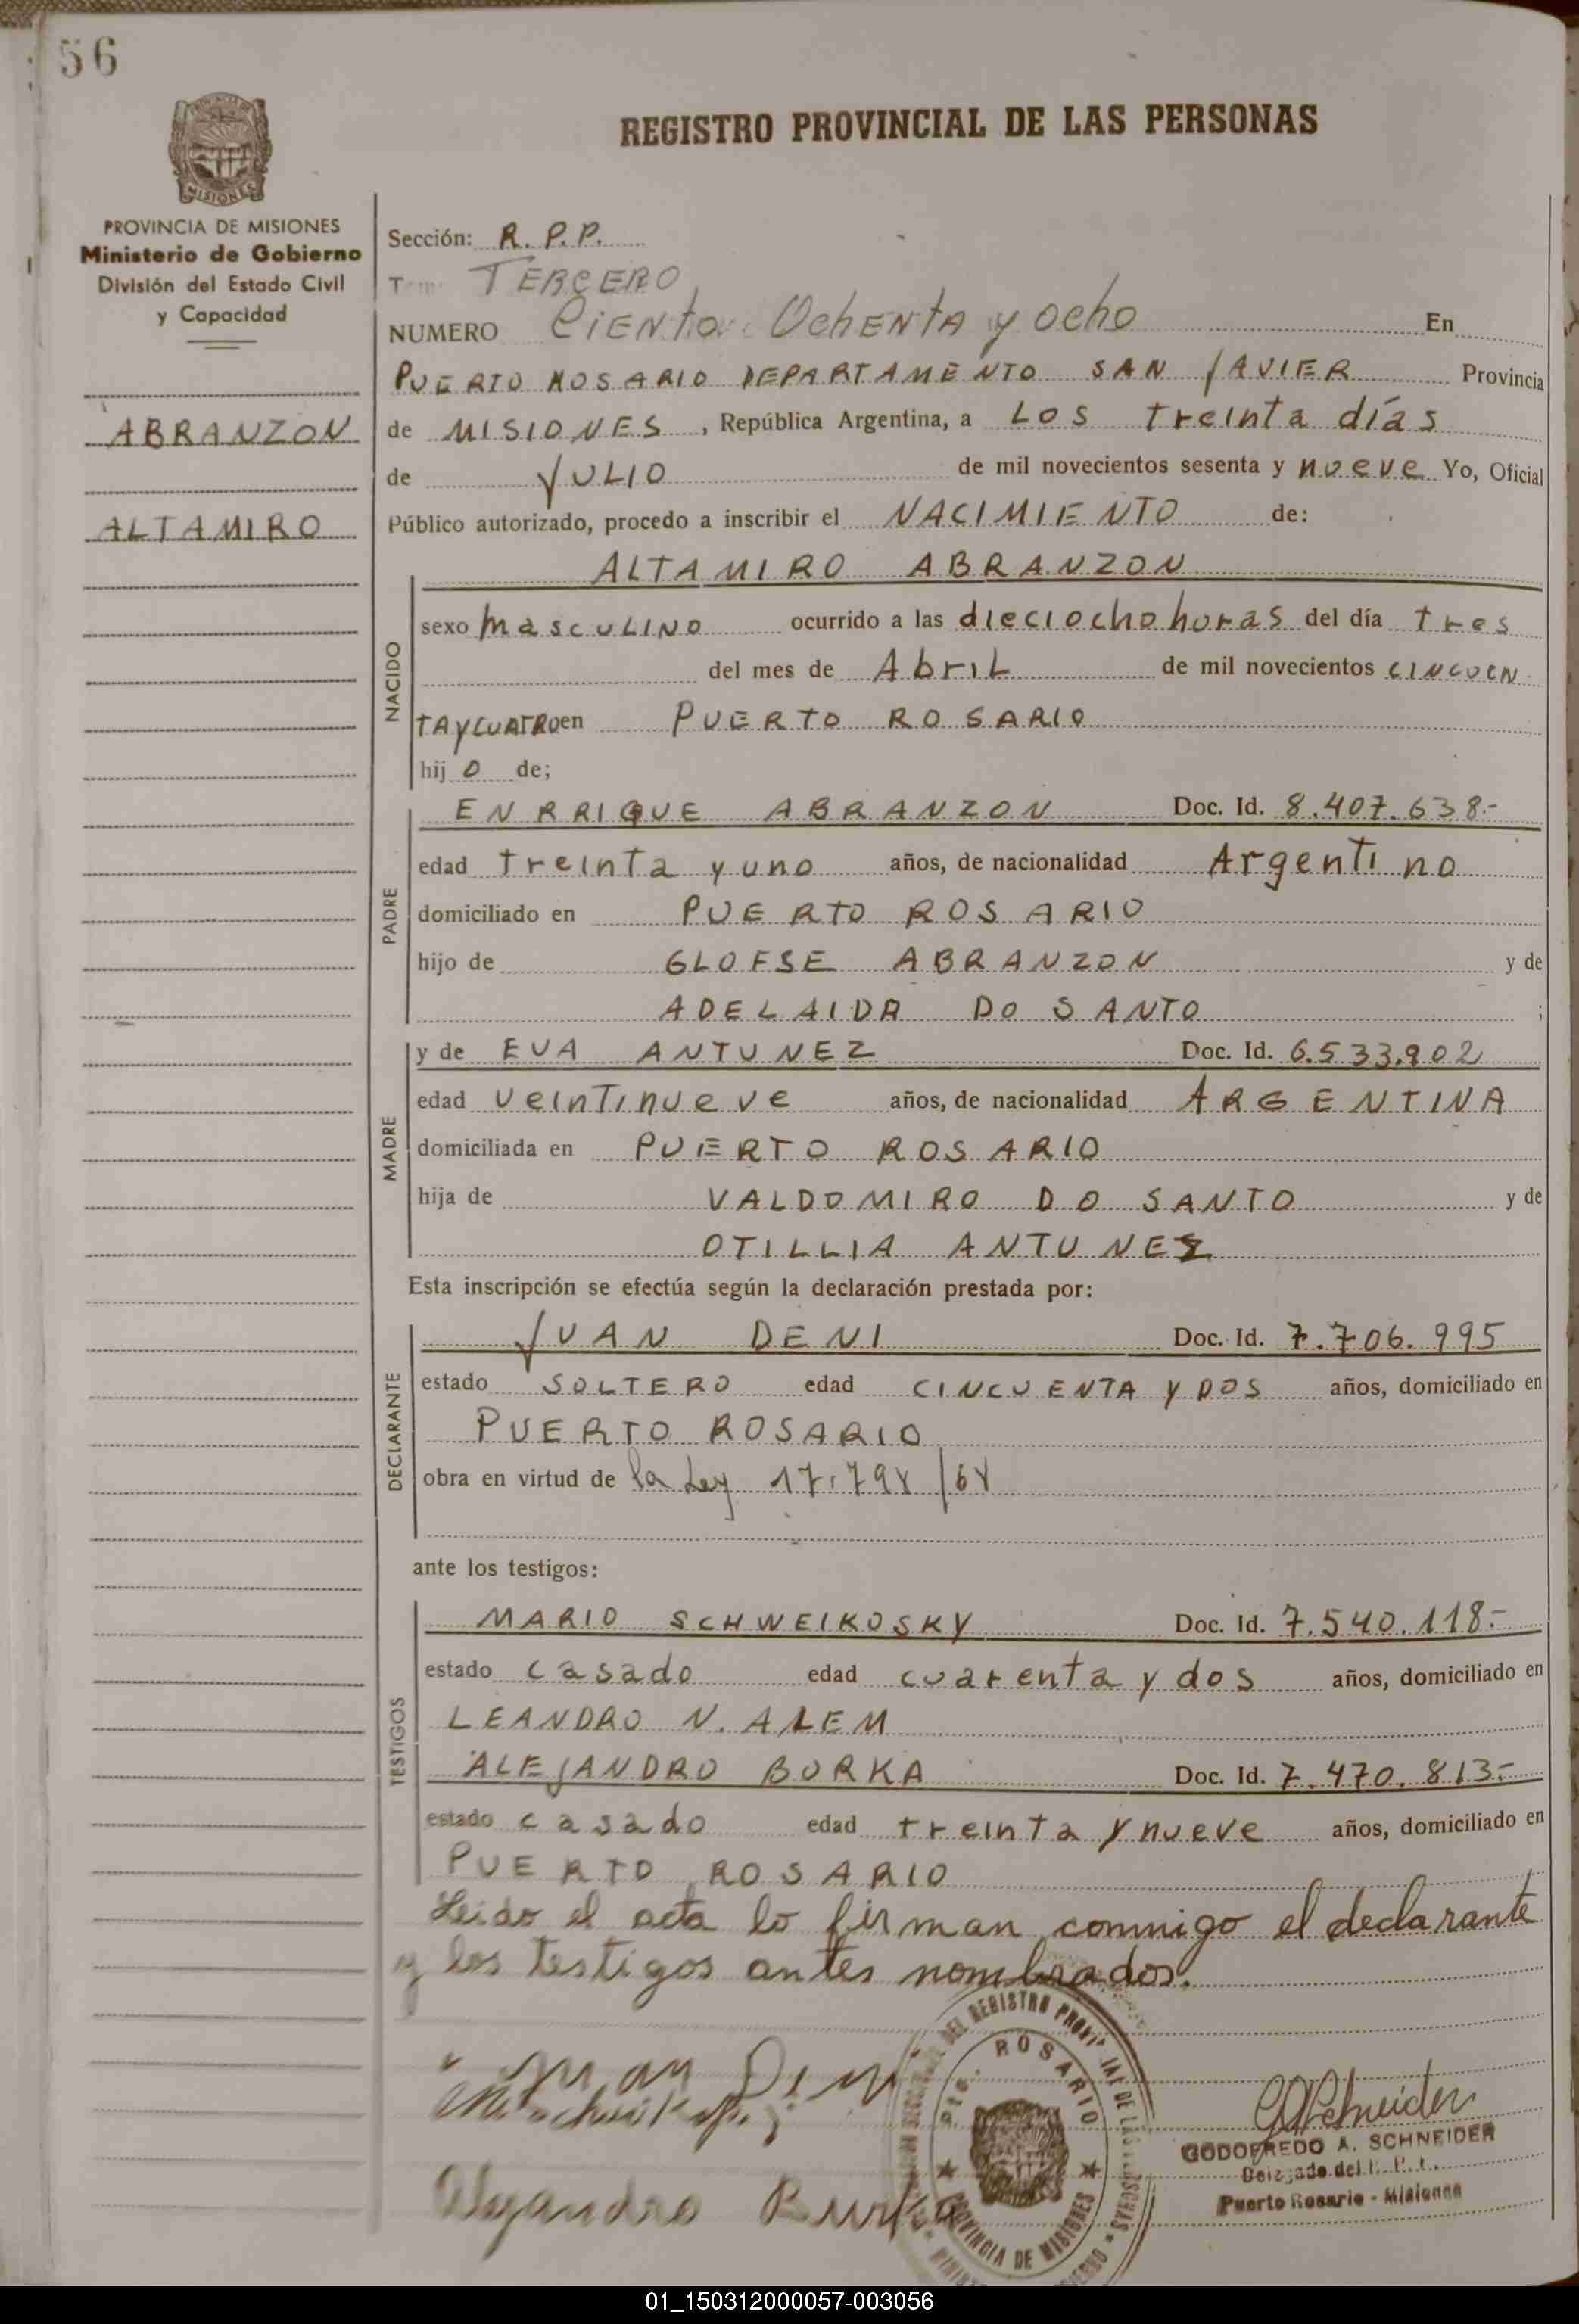 56
REGISTRO PROVINCIAL DE LAS PERSONAS
MISIONES
PROVINCIA DE MISIONES
Ministerio de Gobierno
División del Estado Civil
y Capacidad
ABRANZON
ALTAMIRO
Sección: R.P.P.
Tomo TERCERO
NUMERO CiENto OcheNtA y ocho En
PUERTO ROSARIO DEPARTAMENTO SAN JAVIER Provincia
de MISIONES, República Argentina, a LOS treinta días
de JULIO de mil novecientos sesenta y nueve Yo, Oficial
Público autorizado, procedo a inscribir el NACIMIENTO de:
ALTAMIRO ABRANZON
NACIDO
sexo masculino ocurrido a las dieciocho horas del día tres
del mes de Abril de mil novecientos CINCUEN
TAYCUATRO en PUERTO ROSARIO
hij o de;
PADRE
ENRRIQUE ABRANZON Doc. Id. 8.407.638.-
edad treinta y uno años, de nacionalidad Argentino
domiciliado en PUERTO ROSARIO
hijo de GLOFSE ABRANZON y de
ADELAIDA DO SANTO ;
MADRE
y de EVA ANTUNEZ Doc. Id. 6.533.902
edad veintinueve años, de nacionalidad ARGENTINA
domiciliada en PUERTO ROSARIO
hija de VALDOMIRO DO SANTO y de
OTILLIA ANTUNEZ
Esta inscripción se efectúa según la declaración prestada por:
DECLARANTE
JUAN DENI Doc. Id. 7.706.995
estado SOLTERO edad CINCUENTA Y DOS años, domiciliado en
PUERTO ROSARIO
obra en virtud de la Ley 17.798/68
ante los testigos:
TESTIGOS
MARIO SCHWEIKOSKY Doc. Id. 7.540.118.-
estado casado edad cuarenta y dos años, domiciliado en
LEANDRO N. ALEM
ALEJANDRO BURKA Doc. Id. 7.470.813.-
estado casado edad treinta y nueve años, domiciliado en
PUERTO ROSARIO
Leido el acta lo firman conmigo el declarante
y los testigos antes nombrados.
Juan Deni
Alejandro Burka
DEL REGISTRO PROVINCIAL DE LAS PERSONAS
Pto. ROSARIO
PROVINCIA DE MISIONES
GASchneider
GODOFREDO A. SCHNEIDER
Delegado del R. P. P.
Puerto Rosario - Misiones
01_150312000057-003056